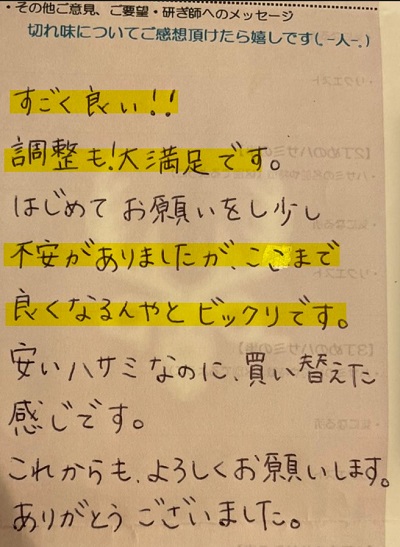 ・その他ご意見、ご要望・研ぎ師へのメッセージ
切れ味についてご感想頂けたら嬉しです(.-人-.)
すごく良い!!
調整も!大満足です。
はじめて お願いをし少し
不安がありましたが、ここまで
良くなるんやと ビックリです。
安いハサミなのに、買い替えた
感じです。
これからも、よろしくお願いします。
ありがとうございました。